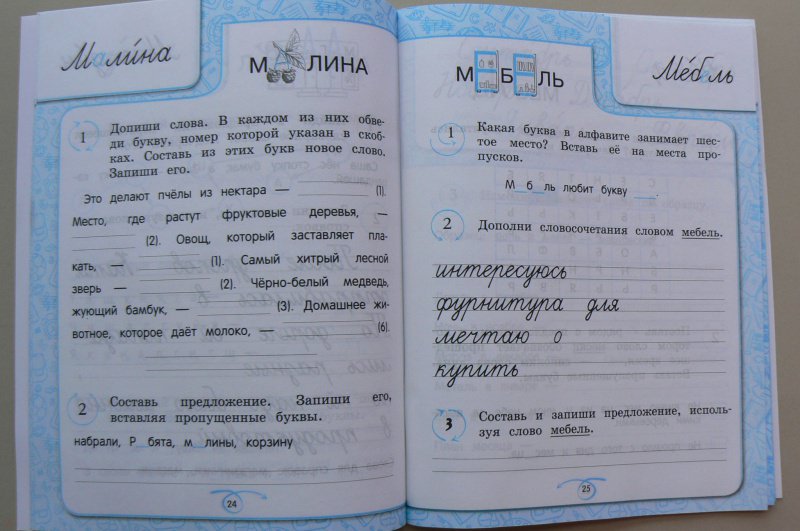 Малина
М ЛИНА
1 Допиши слова. В каждом из них обве-
ди букву, номер которой указан в скоб-
ках. Составь из этих букв новое слово.
Запиши его.
Это делают пчёлы из нектара — (1).
Место, где растут фруктовые деревья, —
(2). Овощ, который заставляет пла-
кать, — (1). Самый хитрый лесной
зверь — (2). Чёрно-белый медведь,
жующий бамбук, — (3). Домашнее жи-
вотное, которое даёт молоко, — (6).
2 Составь предложение. Запиши его,
вставляя пропущенные буквы.
набрали, Р_бята, м_лины, корзину
24
М Б ЛЬ
Мебель
1 Какая буква в алфавите занимает шес-
тое место? Вставь её на места про-
пусков.
М_б_ль любит букву ___.
2 Дополни словосочетания словом мебель.
интересуюсь
фурнитура для
мечтаю о
купить
3 Составь и запиши предложение, исполь-
зуя слово мебель.
25